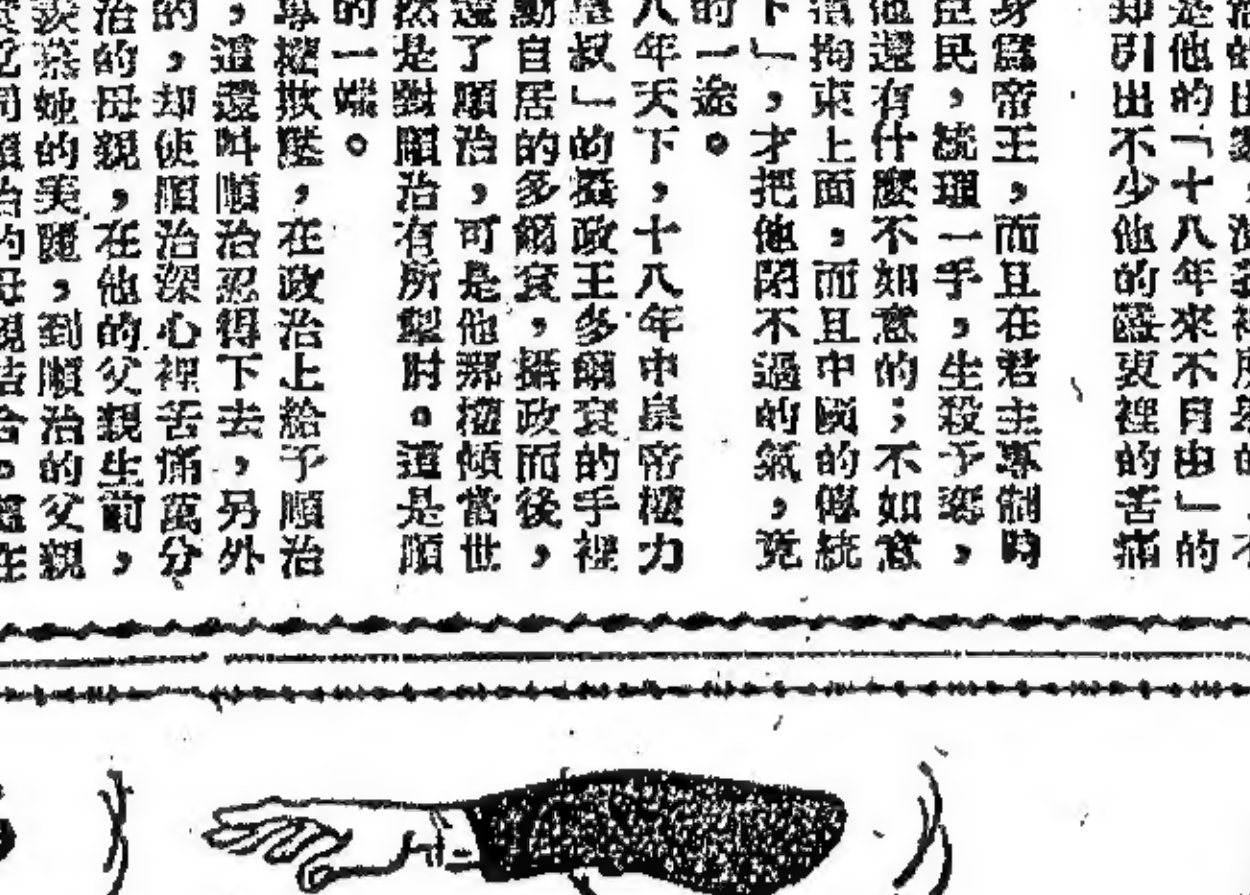 是他的「十八年來不自由」的
却引出不少他的隱衷裡的苦痛
身爲帝王，而且在君主專制時
臣民，統理一手，生殺予奪，
他還有什麼不如意的；不如意
拘束上面，而且中國的傳統
下」，才把他閉不過的氣，竟
的一途。
八年天下，十八年中皇帝權力
皇叔」的攝政王多爾袞的手裡
自居的多爾袞，攝政而後，
還了順治，可是他那權傾當世
然是對順治有所掣肘。這是順
的一端。
專權欺壓，在政治上給予順治
，這還叫順治忍得下去，另外
的，却使順治深心裡苦痛萬分
治的母親，在他的父親生前，
羨慕她的美麗，到順治的父親
順治的母親結合。